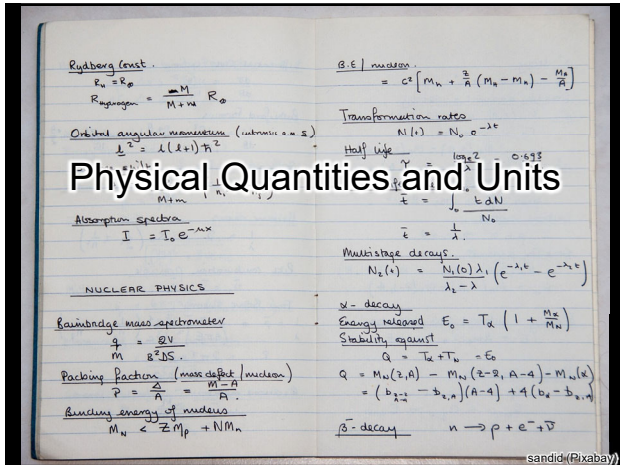 Rydberg Const.
R∞ = R∞
R Hydrogen = M / M+m R∞
Orbital angular momentum (intrinsic a.m S)
l² = l(l+1)ħ²
M+m
Absorption spectra
I = I₀e^-μx
NUCLEAR PHYSICS
Bainbridge mass spectrometer
q/m = 2V / B²DS.
Packing fraction (mass defect/nucleon)
P = Δ/A = M-A / A.
Binding energy of nucleus
M_N < Z M_p + N M_n
Physical Quantities and Units
B.E / nucleon.
= c² [ M_n + Z/A (M_H - M_n) - M_A/A ]
Transformation rates
N(t) = N₀ e^-λt
Half life
τ = log_e 2 / λ = 0.693
t̄ = ∫₀ t dN / N₀
t̄ = 1/λ.
Multistage decays.
N₂(t) = N₁(0) λ₁ / λ₂ - λ (e^-λ₁t - e^-λ₂t)
α - decay
Energy released E₀ = Tα (1 + Mα/M_N)
Stability against
Q = Tα + T_N = E₀
Q = M_N(Z,A) - M_N(Z-2, A-4) - M_N(α)
= (b_Z-2,A-4 - b_Z,A)(A-4) + 4(bα - b_Z,A)
β⁻ - decay n → p + e⁻ + ν̄
sandid (Pixabay)